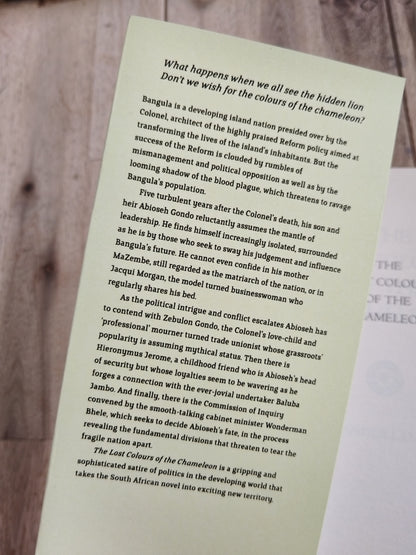 What happens when we all see the hidden lion
Don't we wish for the colours of the chameleon?
Bangula is a developing island nation presided over by the
Colonel, architect of the highly praised Reform policy aimed at
transforming the lives of the island's inhabitants. But the
success of the Reform is clouded by rumbles of
mismanagement and political opposition as well as by the
looming shadow of the blood plague, which threatens to ravage
Bangula's population.
Five turbulent years after the Colonel's death, his son and
heir Abioseh Gondo reluctantly assumes the mantle of
leadership. He finds himself increasingly isolated, surrounded
as he is by those who seek to sway his judgement and influence
Bangula's future. He cannot even confide in his mother
MaZembe, still regarded as the matriarch of the nation, or in
Jacqui Morgan, the model turned businesswoman who
regularly shares his bed.
As the political intrigue and conflict escalates Abioseh has
to contend with Zebulon Gondo, the Colonel's love-child and
'professional' mourner turned trade unionist whose grassroots'
popularity is assuming mythical status. Then there is
Hieronymus Jerome, a childhood friend who is Abioseh's head
of security but whose loyalties seem to be wavering as he
forges a connection with the ever-jovial undertaker Baluba
Jambo. And finally, there is the Commission of Inquiry
convened by the smooth-talking cabinet minister Wonderman
Bhele, which seeks to decide Abioseh's fate, in the process
revealing the fundamental divisions that threaten to tear the
fragile nation apart.
The Lost Colours of the Chameleon is a gripping and
sophisticated satire of politics in the developing world that
takes the South African novel into exciting new territory.
THE
T COLOU
OF THE
HAMELEO